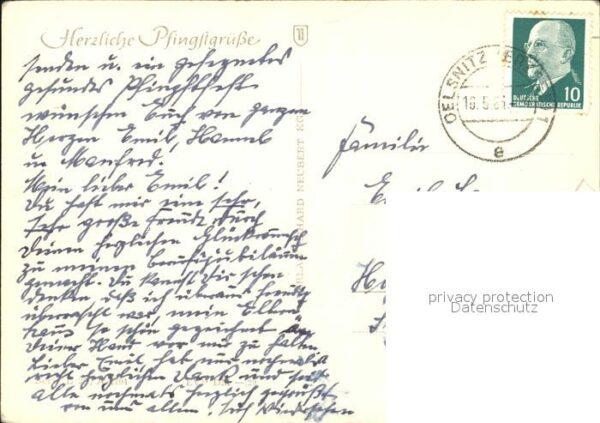 Herzliche Pfingstgrüße
senden u. ein gesegnetes
gesundes Pfingstfest
wünschen Euch von ganzem
Herzen Emil, Hannel
u. Manfred.
Mein lieber Emil!
Du hast mir eine sehr,
sehr große Freude durch
Deinen herzlichen Glückwunsch
zu meinem Berufsjubiläum
gemacht. Du kannst Dir schon
denken daß ich überaus freudig
überrascht war mein Eltern
haus so schön gezeichnet
Deiner Hand vor mir zu halten.
Lieber Emil, hab nun nochmals
recht herzlichen Dank und seid
alle nochmals herzlich gegrüßt
von uns allen. Auf Wiedersehen
HARD NEUBERT KG
OELSNITZ
e
DEUTSCHE
DEMOKRATISCHE REPUBLIK
10
Familie
Emil
privacy protection
Datenschutz